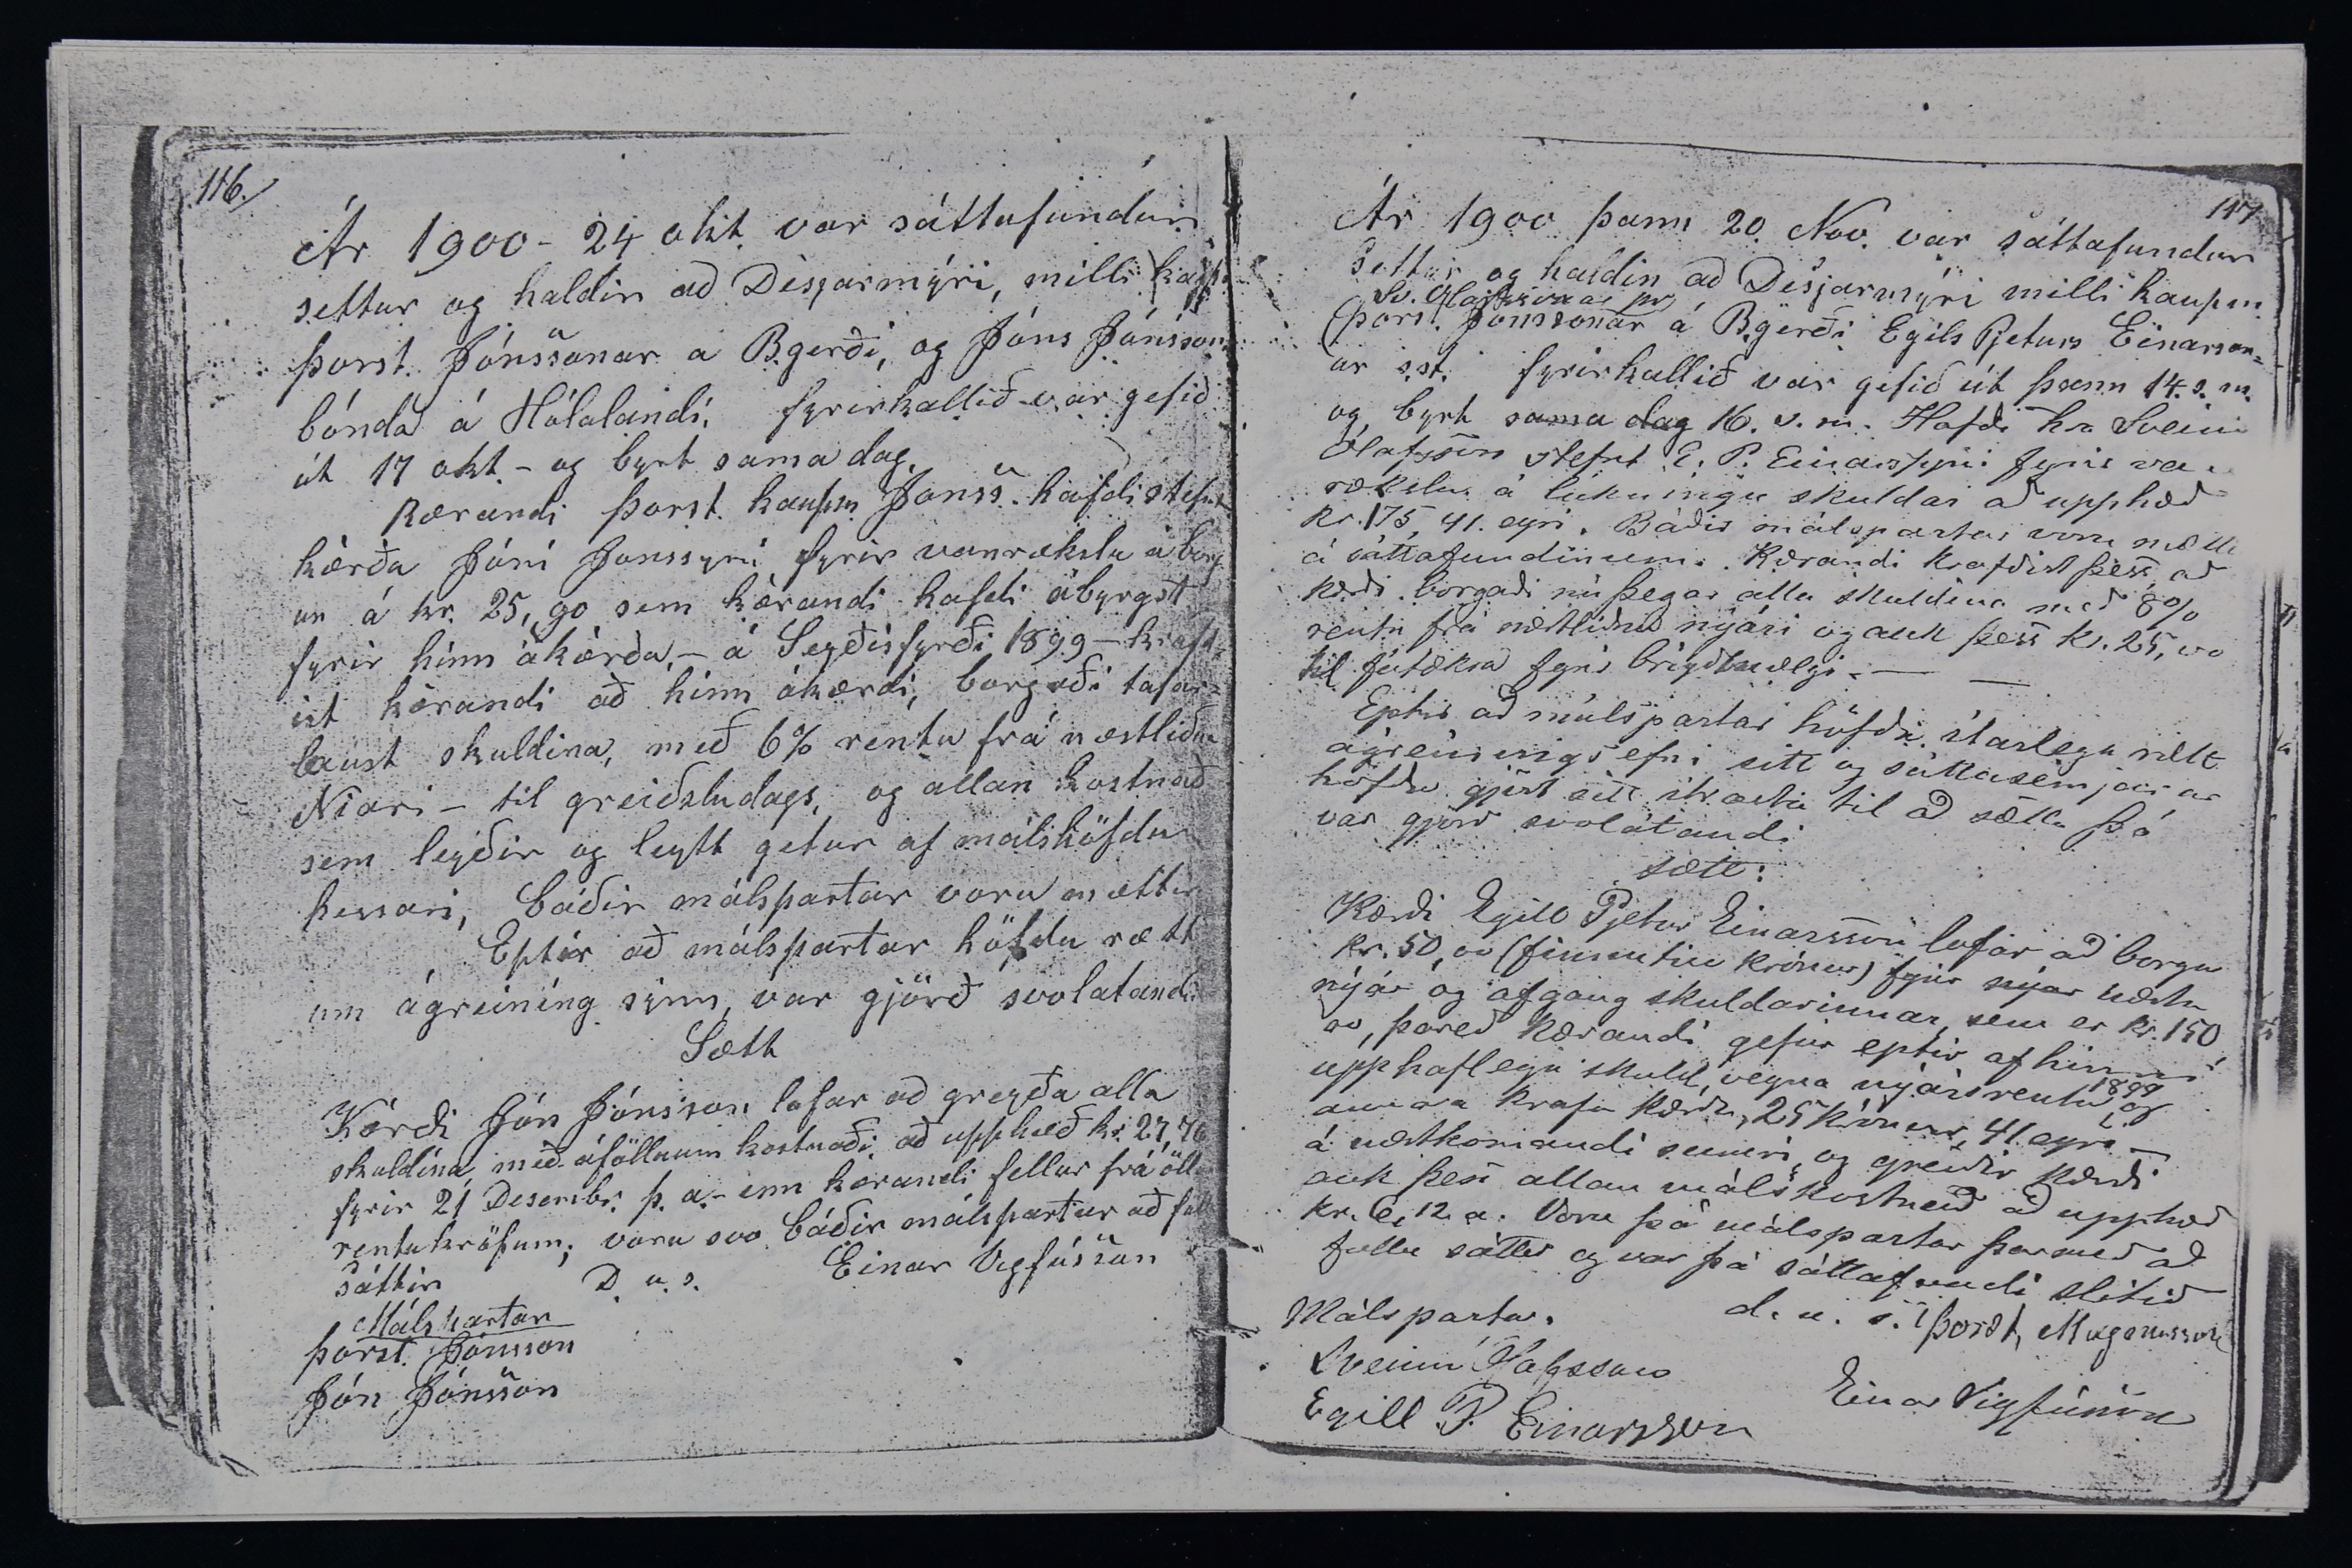 116.
Ár 1900 - 24 okt. var sáttafundur
settur og haldin að Desjarmýri, milli kaupm
Þorst. Jónssonar a B.gerði, og Jóns Jónsson
bónda á Hólalandi. fyrirkallið var gefið
út 17 okt - og byrt sama dag.
Kærandi Þorst. kaupm Jonss. hafdi stefnt
kærða Jóni Jonssyni fyrir vanrækslu á borg
un á kr. 25,90 sem kærandi hafdi ábyrgst
fyrir hinn ákærða, - á Seyðisfyrði 1899 - kraft
ist kærandi að hinn ákærdi, borgaði tafar-
laust skuldina, með 6% rentu frá næstliðnu
Niari - til greiðsludags, og allan kostnað
sem leyðir og leytt getur af málshöfdu
þessari, báðir málspartar voru mættir
Eptir að málspartar höfdu rætt
um ágreining sinn, var gjörð svolatandi
Sætt
Kærði Jón Jónsson lofar að greyða alla
skuldina með áföllnum kostnaði, að upphæð kr. 27,70
fyrir 21 Desembr. þ. a. - enn kærandi fellur frá öll
rentukröfum; voru svo báðir málspartar að full
sáttir
D. u. s.
Einar Vigfússon
Málspartar
Þorst. Jónsson
Jón Jónsson
117
Ár 1900 þann 20. Nov. var sáttafundur
settur og haldin að Desjarmýri milli kaupm.
Sv. Olafssonar pr
(Þorst. Jónssonar á B.gerði Egils Pjeturs Einarsson-
ar s.st. fyrirkallið var gefið út þann 14. s. m.
og byrt sama dag 16. s. m. Hafði hra Sveinn
Olafsson stefnt E. P. Einarssyni fyrir van
rækslu á lúkningu skuldar að upphæð
kr. 175, 41. eyri. Báðir málspartar voru mættir
á sáttafundinum. Kærandi krafðist þess, að
kærði borgaði nú þegar alla skuldina með 8%
rentu frá næstliðnu nýári og auk þess kr. 25,00
til fátækra fyrir brigðmælgi. —
Eptir að málspartar höfðu ítarlega rætt
ágreiningsefni sitt og sáttasemjarar
höfðu gjört sitt ítrasta til að sætta þá
var gjörð svolátandi
sætt:
Kærði Egill Pjetur Einarsson lofar að borga
kr. 50,00 (fimmtíu krónur) fyrir nýar næsta
nýár og afgang skuldarinnar, sem er kr. 150
00, þareð kærandi gefur eptir af hinni
upphaflegu skuld, vegna nýársrentu 1899 og
annara krafa kærða, 25 krónur, 41. eyri —
á næstkomandi sumri, og greiðir kærði
auk þess allan málskostnað að upphæð
kr. 6, 12 a. Voru þá málspartar þarmeð að
fullu sáttir og var þá sáttafundi slitið
d. u. s.
Málspartar.
Þorst, Magnusson
Sveinn Olafsson
Einar Vigfússon
Egill P. Einarsson